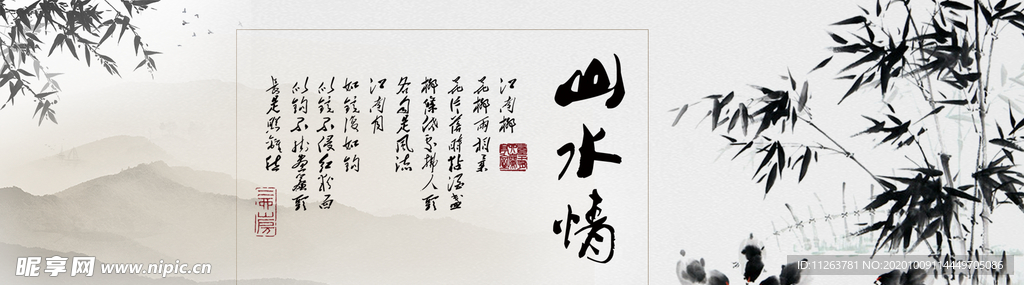 山水情
江南柳
花柳两相柔
花片落时黏酒盏
柳条低处拂人头
各自是风流
江南月
如镜复如钩
似镜不侵红粉面
似钩不挂画帘头
长是照离愁
昵享网 www.nipic.cn
ID:11263781 NO:20201009114449705086